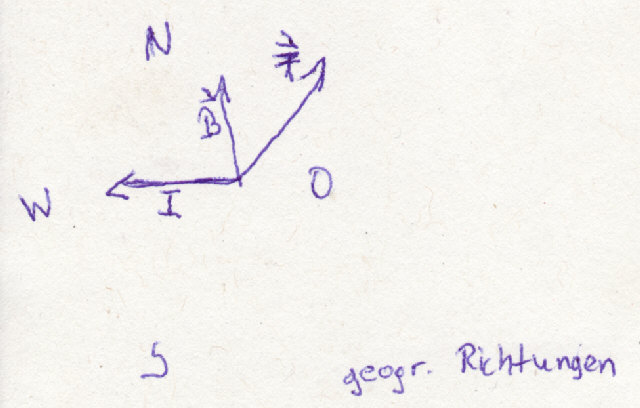 N
F
B
W
I
O
S
geogr. Richtungen